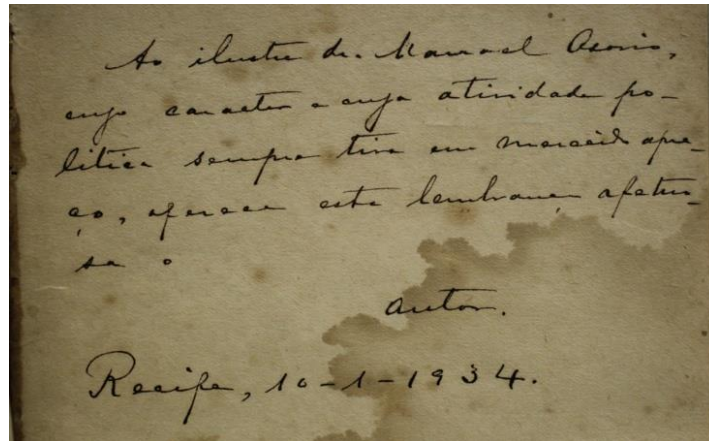 Ao ilustre dr. Manoel Osorio,
cujo caracter e cuja atividade po-
litica sempre tive em merecido apre-
ço, oferece esta lembrança afetuo-
sa o
autor.
Recife, 10-1-1934.